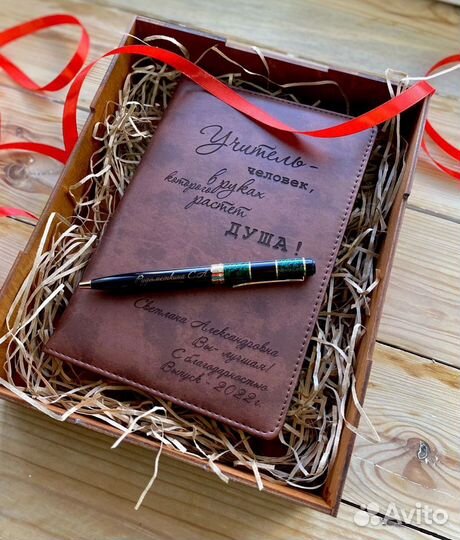 Учитель -
человек,
в руках
которого
растет
ДУША!
Светлана Александровна
Вы - лучшая!
С благодарностью,
Выпуск 2022г.
Avito